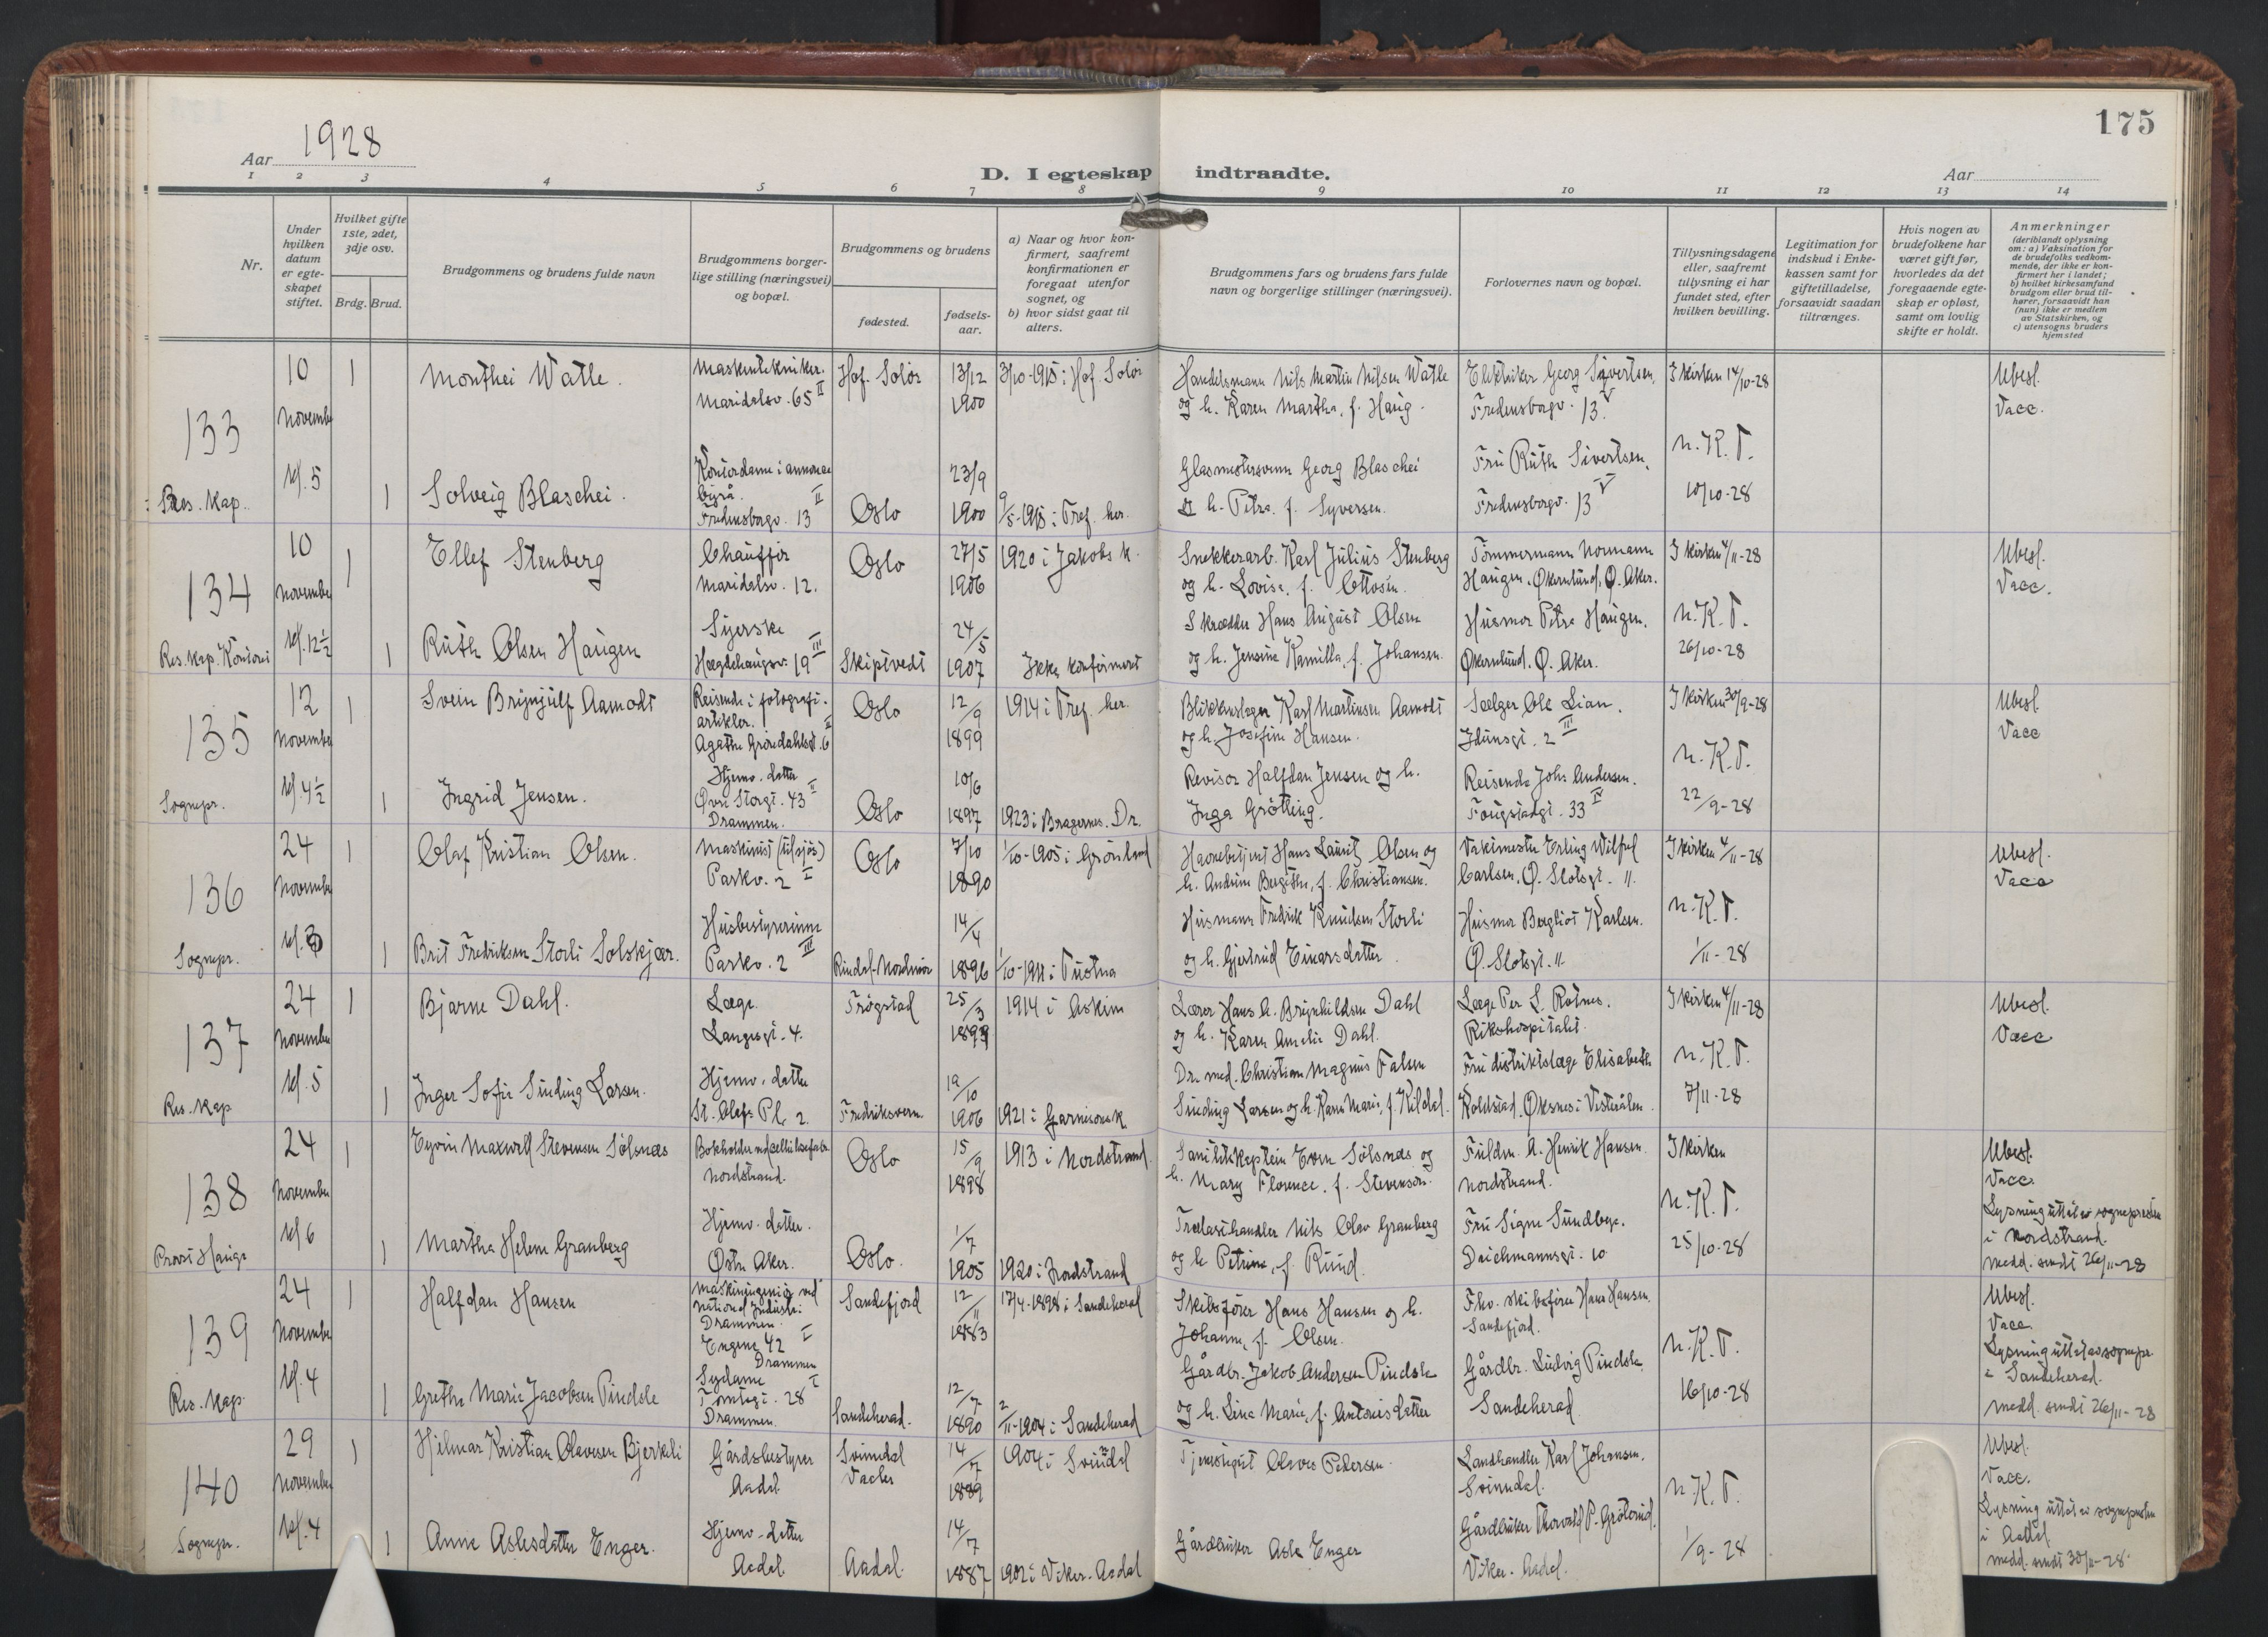 175
Aar 1928
D. I egteskap indtraadte.
Aar
1 2 3 4 5 6 7 8 9 10 11 12 13 14
Nr.
Under hvilken datum er egteskapet stiftet.
Hvilket gifte 1ste, 2det, 3dje osv.
Brdg. Brud.
Brudgommens og brudens fulde navn
Brudgommens borgerlige stilling (næringsvei) og bopæl.
Brudgommens og brudens
fødested.
fødselsaar.
a) Naar og hvor konfirmert, saafremt konfirmationen er foregaat utenfor sognet, og
b) hvor sidst gaat til alters.
Brudgommens fars og brudens fars fulde navn og borgerlige stillinger (næringsvei).
Forlovernes navn og bopæl.
Tillysningsdagene eller, saafremt tillysning ei har fundet sted, efter hvilken bevilling.
Legitimation for indskud i Enkekassen samt for giftetilladelse, forsaavidt saadan tiltrænges.
Hvis nogen av brudefolkene har været gift før, hvorledes da det foregaaende egteskap er opløst, samt om lovlig skifte er holdt.
Anmerkninger
(deriblandt oplysning om: a) Vaksination for de brudefolks vedkommende, der ikke er konfirmert her i landet; b) hvilket kirkesamfund brudgom eller brud tilhører, forsaavidt han (hun) ikke er medlem av Statskirken, og c) utensogns bruders hjemsted
133
Res. Kap.
10 November kl. 5
1 Monthei Watle. Maskintekniker. Maridalsv. 65 II Hof. Solør 13/12 1900 3/10-1915 i Hof. Solør
Handelsmann Nils Martin Nilsen Watle og h. Karen Martha, f. Haug. Elektriker Georg Sivertsen, Fredensborgv. 13 V I kirken 14/10-28 Ubesl. Vacc.
1 Solveig Blaschei. Kontordame i annonce byrå. Fredensborgv. 13 II Oslo 23/9 1900 9/5-1915 i Tref. her.
Glasmestersvenn Georg Blaschei og h. Petra. f. Syversen. Fru Ruth Sivertsen, Fredensborgv. 13 V n. K. T. 10/10-28
134
Res. Kap. Kontoret
10 November kl. 12½
1 Ellef Stenberg Chauffør Maridalsv. 12. Oslo 27/5 1906 1920 i Jakobs k.
Snekkerarb. Karl Julius Stenberg og h. Lovise, f. Ottosen. Tømmermann Normann Haugen, Økernlund, Ø. Aker. I kirken 4/11-28 Ubesl. Vacc.
1 Ruth Olsen Haugen Syerske Hegdehaugsv. 19 III Skiptvedt 24/5 1907 Ikke konfirmert
Skrædder Hans August Olsen og h. Jensine Kamilla, f. Johansen. Husmor Petra Haugen, Økernlund. Ø. Aker. n. K. T. 26/10-28
135
Sognepr.
12 November kl. 4½
1 Svein Brynjulf Aamodt Reisende i fotografi-artikler. Agathe Grøndahlsgt. 6 II Oslo 12/9 1899 1914 i Tref. her.
Blikkenslager Karl Martinsen Aamodt og h. Josefine Hansen. Sælger Ole Lian. Idunsgt. 2 III I kirken 30/9-28 Ubesl. Vacc
1 Ingrid Jensen. Hjemv. datter Øvre Storgt. 43 II Drammen. Oslo 10/6 1897 1923 i Bragernes. Dr.
Revisor Halfdan Jensen og h. Inga Grøtting. Reisende Johs Andersen. 33 IV n. K. T. 22/9-28
136
Sognepr.
24 November
1 Olaf Kristian Olsen. Maskinist (tilsjøs) Parkv. 2 I Oslo 7/10 1890 1/10-1905 i Grønland
Havnebetjent Hans Lauritz Olsen og h. Andrine Bergithe, f. Christiansen. Vaktmester Erling Wilfred Carlsen. Ø. Slotsgt. 11. I kirken 4/11-28 Ubesl. Vacc
1 Brit Fredriksen Storli Solskjær. Husbestyrerinne Parkv. 2 III Rindal-Nordmør 14/4 1896 1/10-1911 i Tustna
Husmann Fredrik Knudsen Storli og h. Gjertrud Einarsdatter. Husmor Bergliot Karlsen. Ø. Slotsgt. 11. n. K. T. 1/11-28
137
Res. Kap
24 November kl. 5
1 Bjarne Dahl. Læge. Langesgt. 4. Trøgstad 25/3 1899 1914 i Askim
Lærer Hans A. Brynhildsen Dahl og h. Karen Amelie Dahl. Læge Per L. Rotnes. Rikshospitalet. I kirken 4/11-28 Ubesl. Vacc
1 Inger Sofie Sinding Larsen. Hjemv. datter St. Olafs Pl. 2. Fredriksvern 19/10 1906 1921 i Garnisonsk
Dr. med. Christian Magnus Falsen Sinding Larsen og h. Karen Marie, f. Kildal. Fru distriktslæge Elisabeth Koldstad. Øksnes i Vesterålen. n. K. T. 7/11-28
138
Provst Hauge
24 November kl 6
1 Eyvin Maxwell Stevenson Sølsnæs Bokholder ved cellulosefabr. Nordstrand. Oslo 15/9 1898 1913 i Nordstrand.
Sanitetskaptein Even Sølsnæs og h. Mary Florence. f. Stevenson. Fuldm. A. Henrik Hansen. Nordstrand. I kirken Ubesl. Vacc.
1 Martha Helene Granberg Hjemv. datter. Østre Aker. Oslo. 1/7 1905 1920 i Nordstrand
Trælasthandler Nils Olav Granberg og h Petrine, f. Ruud. Fru Signe Sundbye. Deichmannsgt. 10 n. K. T. 25/10-28 Lysning uttat av sognepresten i Nordstrand. medd. sendt 26/11-28
139
Res. Kap.
24 November kl. 4
1 Halfdan Hansen Maskiningeniør ved National Industri Drammen. Engene 42 I Drammen Sandefjord 12/11 1883 17/4-1898 i Sandeherad
Skibsfører Hans Hansen og h. Johanne, f. Olsen. Fhv. skibsfører Hans Hansen. Sandefjord. Ubesl. Vacc.
1 Grethe Marie Jacobsen Pindsle Sydame Tomtegt. 28 I Drammen. Sandeherad. 12/7 1890 2/11-1904 i Sandeherad
Gårdbr. Jakob Andersen Pindsle og h. Lina Marie, f. Antonisdatter Gårdbr. Ludvig Pindsle Sandeherad. n. K. T. 16/10-28 Lysning uttat av sognepr. i Sandeherad. medd. sendt 26/11-28
140
Sognepr.
29 November kl. 4
1 Hilmar Kristian Olavesen Bjerkeli Gårdsbestyrer Aadal Svinndal 14/7 1889 1904 i Svindal
Tjenestegut Olaves Pedersen. Landhandler Karl Johansen. Svinndal. Ubesl. Vacc.
1 Anne Aslesdatter Enger. Hjemv. datter Aadal Aadal. 14/7 1887 1902 i Viker. Aadal
Gårdbruker Asle Enger Gårdbruker Thorvald P. Grøterud. Viker. Aadal. n. K. T. 1/9-28 Lysning uttat av sognepresten i Aadal. medd. sendt 30/11-28.